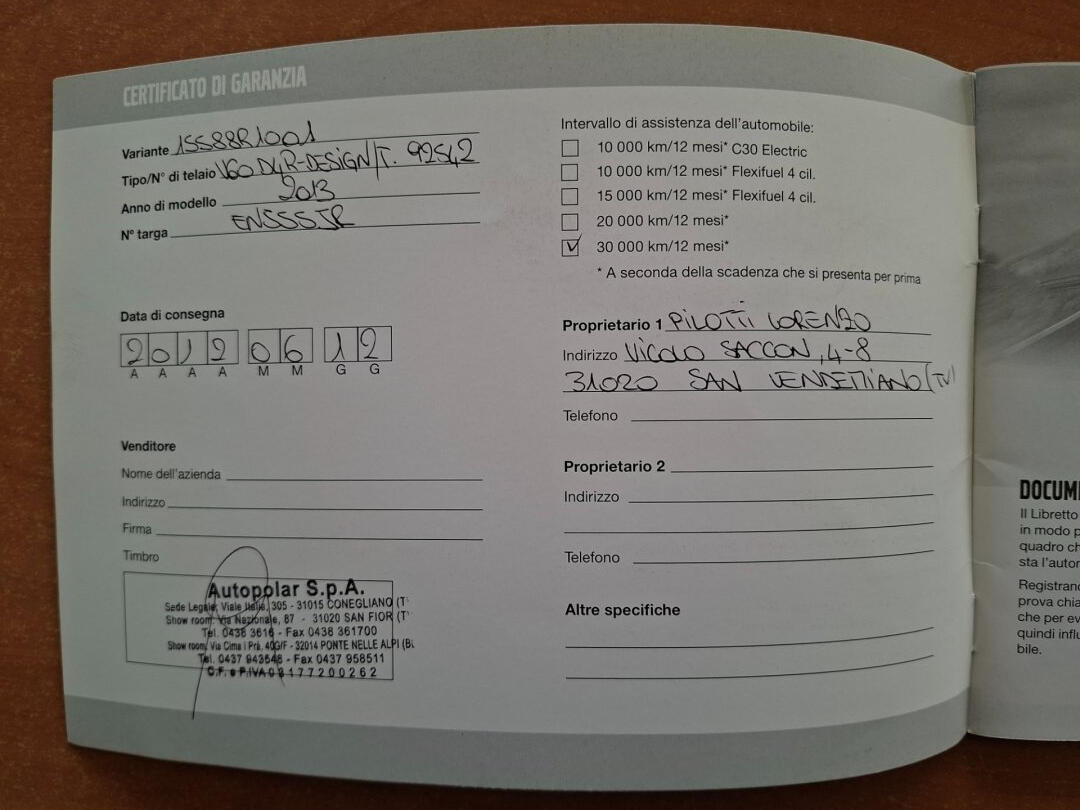 CERTIFICATO DI GARANZIA
Variante 15588R1001
Tipo/N° di telaio V60 D4 R-DESIGN/T. 92542
Anno di modello 2013
N° targa EN555JR
Data di consegna
2012 06 12
A A A A M M G G
Venditore
Nome dell'azienda
Indirizzo
Firma
Timbro
Autopolar S.p.A.
Sede Legale: Viale Italia, 305 - 31015 CONEGLIANO (T
Show room: Via Nazionale, 87 - 31020 SAN FIOR (T
Tel. 0438 3616 - Fax 0438 361700
Show room: Via Cima i Prà, 40G/F - 32014 PONTE NELLE ALPI (BL
Tel. 0437 943548 - Fax 0437 958511
C.F. e P.IVA 03177200262
Intervallo di assistenza dell'automobile:
10 000 km/12 mesi* C30 Electric
10 000 km/12 mesi* Flexifuel 4 cil.
15 000 km/12 mesi* Flexifuel 4 cil.
20 000 km/12 mesi*
30 000 km/12 mesi*
* A seconda della scadenza che si presenta per prima
Proprietario 1 PILOTTI LORENZO
Indirizzo VICOLO SACCON, 4-8
31020 SAN VENDEMIANO (TV)
Telefono
Proprietario 2
Indirizzo
Telefono
Altre specifiche
DOCUM
Il Libretto
in modo p
quadro ch
sta l'autor
Registrand
prova chia
che per ev
quindi influ
bile.